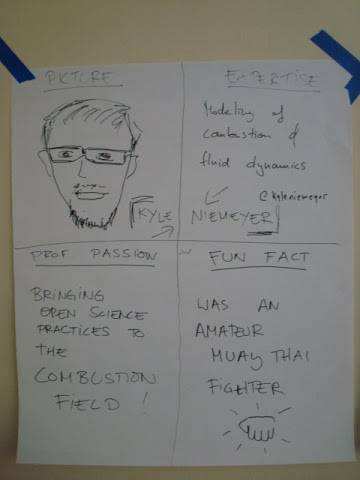 PICTURE
KYLE
EXPERTISE
Modeling of
combustion &
fluid dynamics
@kyleniemeyer
NIEMEYER
PROF. PASSION
BRINGING
OPEN SCIENCE
PRACTICES TO
THE
COMBUSTION
FIELD !
FUN FACT
WAS AN
AMATEUR
MUAY THAI
FIGHTER